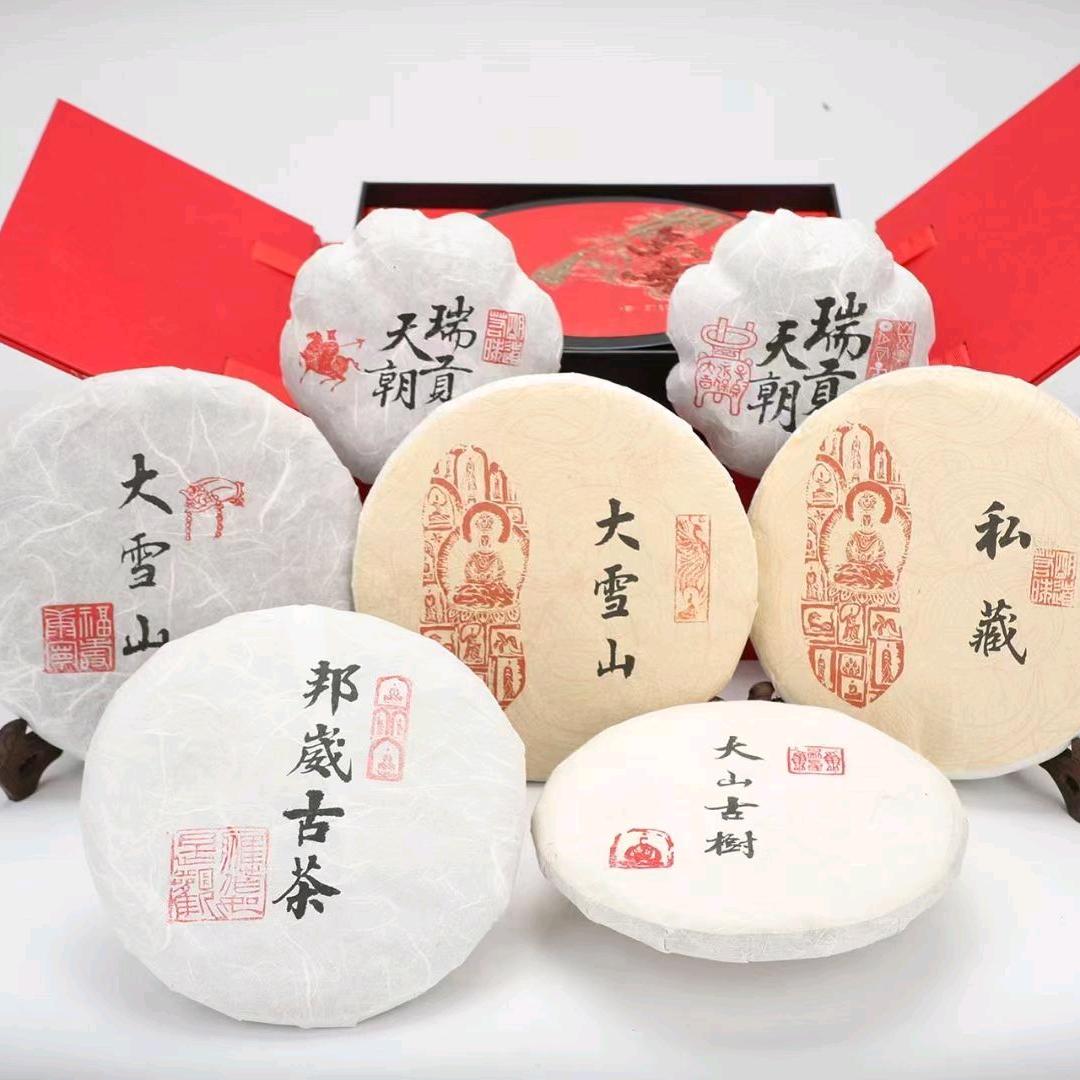 瑞贡
天朝
瑞贡
天朝
大雪山
大雪山
私藏
邦崴古茶
大山古樹